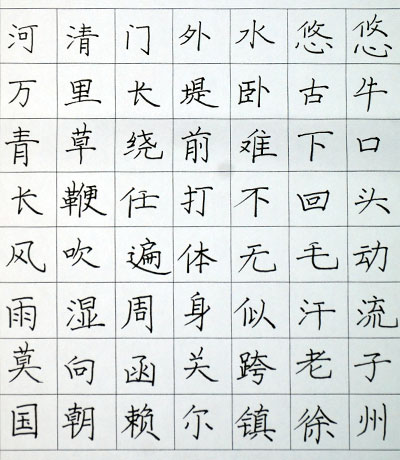 河清门外水悠悠
万里长堤卧古牛
青草绕前难下口
长鞭任打不回头
风吹遍体无毛动
雨湿周身似汗流
莫向函关跨老子
国朝赖尔镇徐州